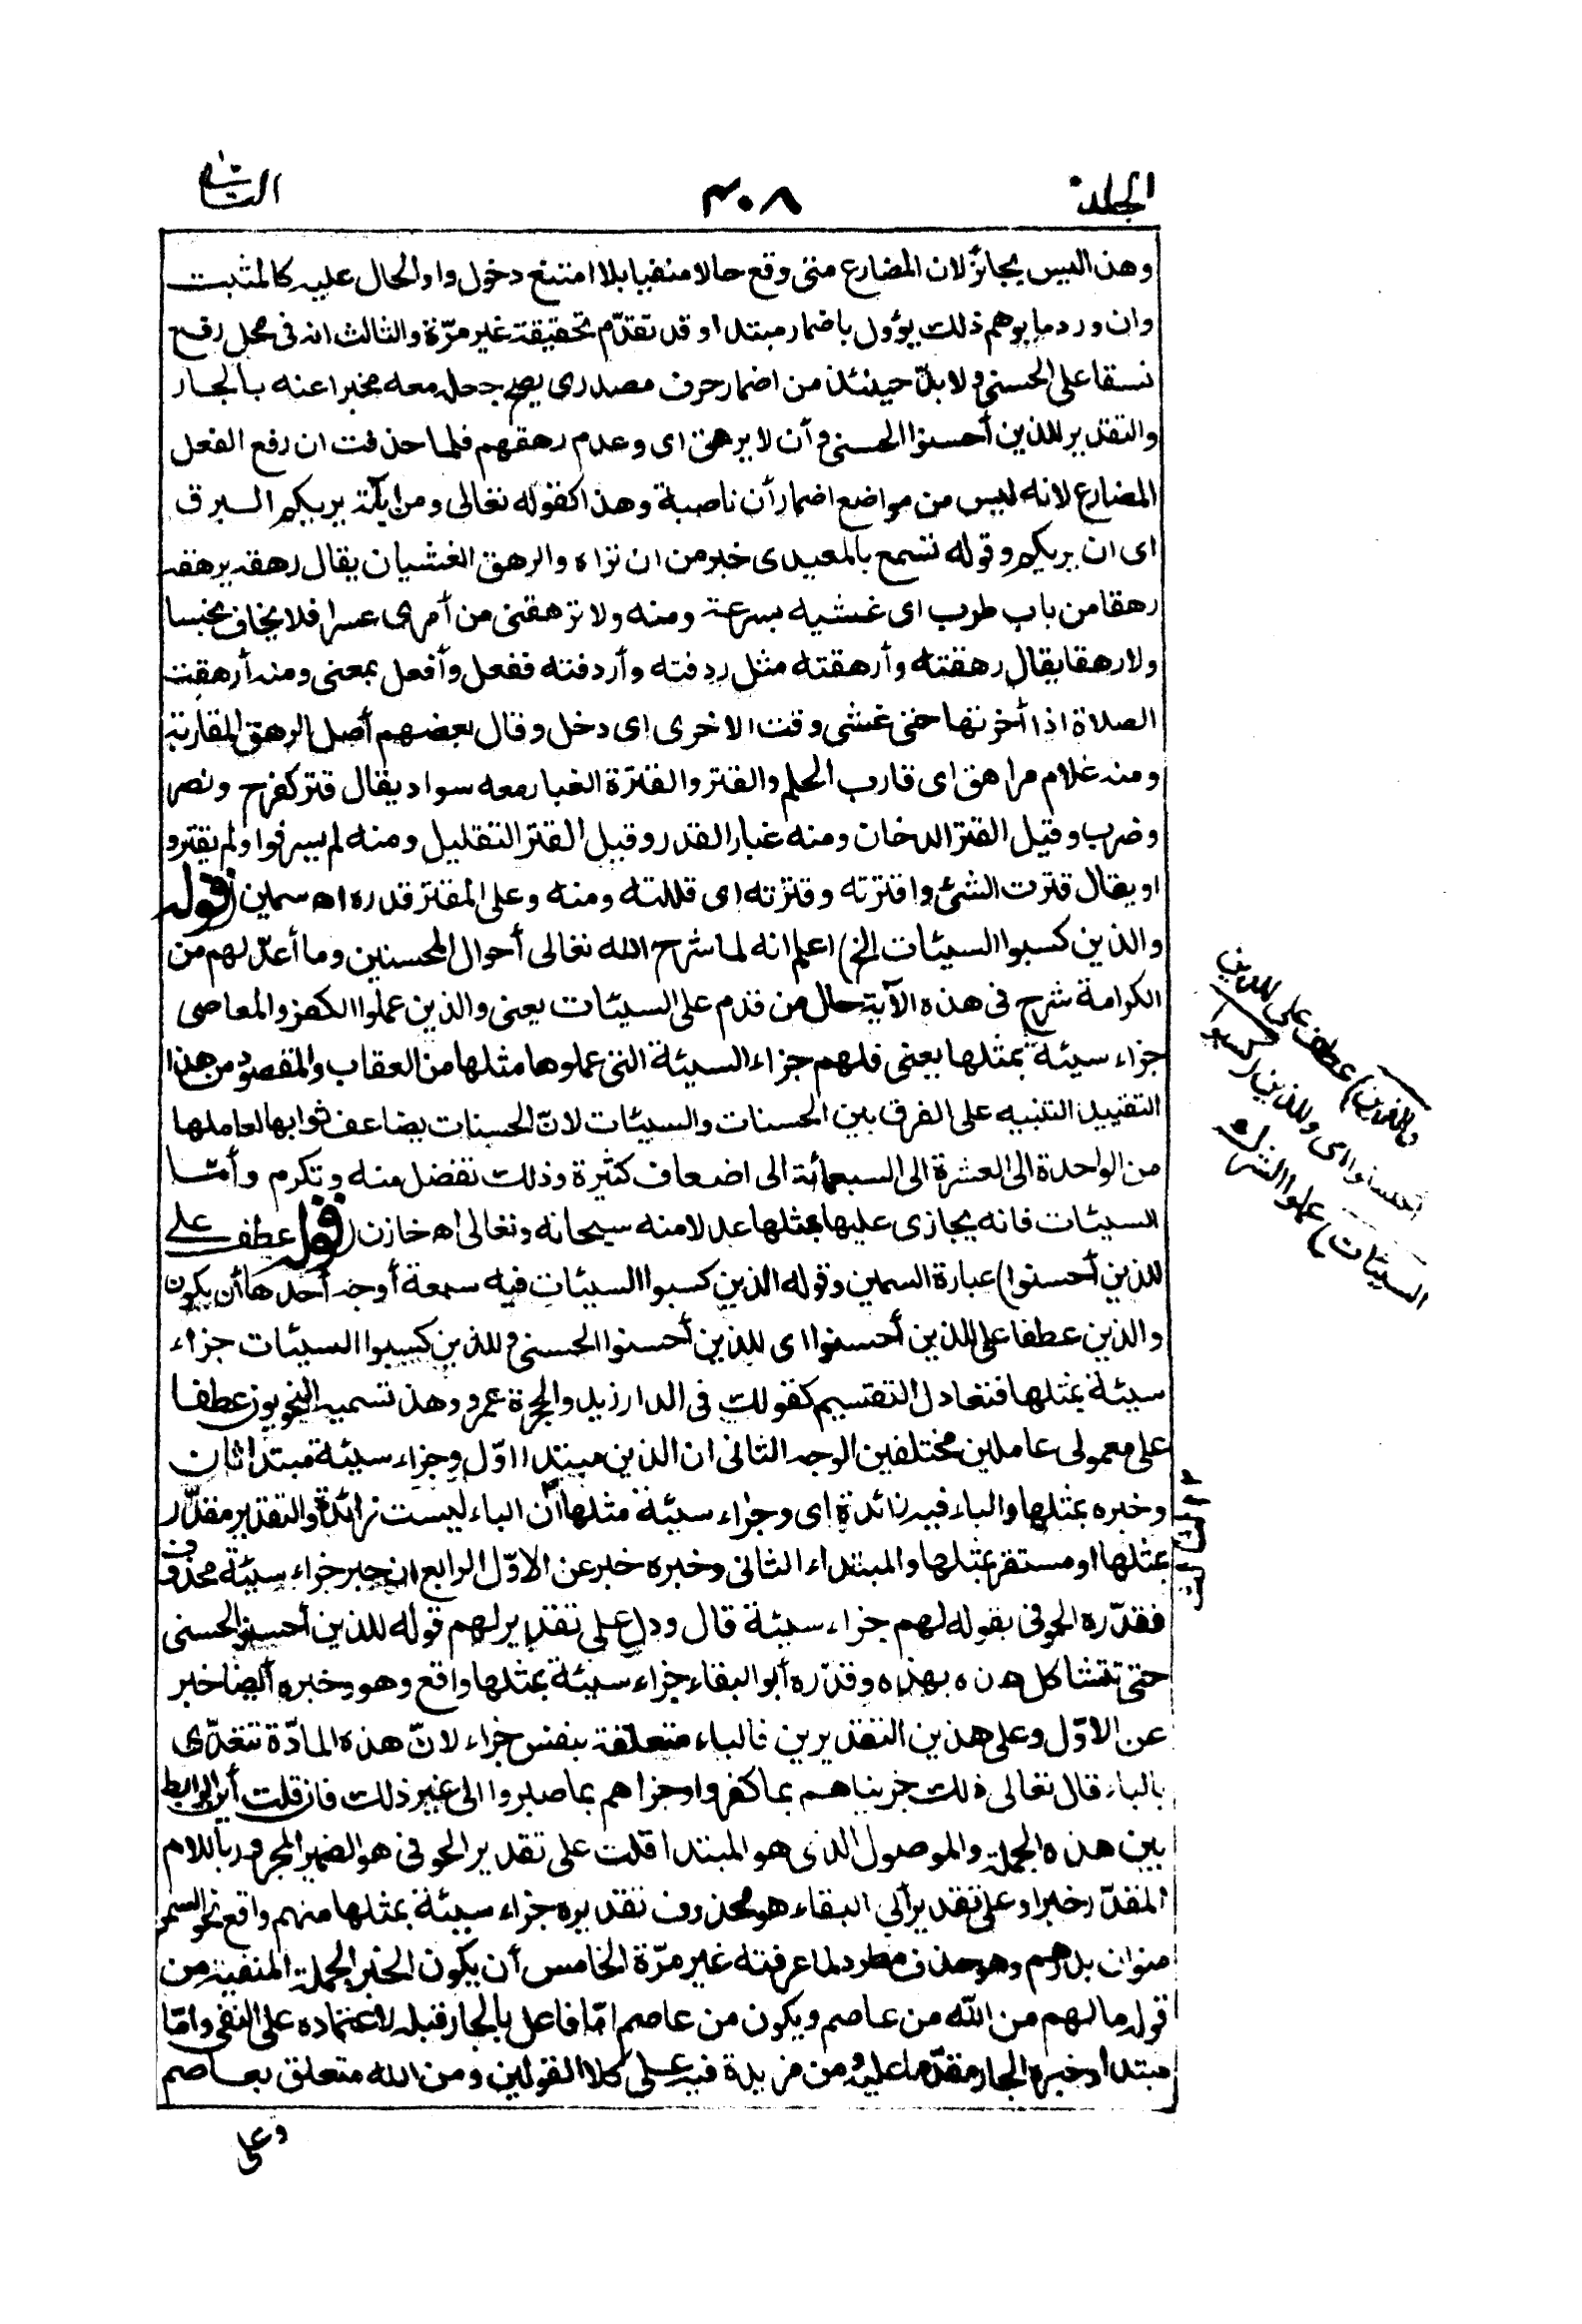 الجلد ٣٠٨ الثانى
وهذا ليس بجائز لان المضارع متى وقع حالا منفيا بلا امتنع دخول واو الحال عليه كالمثبت
وان ورد ما يوهم ذلك يؤول باضمار مبتدا وقد تقدّم تحقيقه غير مرّة والثالث انه فى محل رفع
نسقا على الحسنى ولا بدّ حينئذ من اضمار حرف مصدرى يصح جعله معه مخبرا عنه بالجار
والتقدير للذين أحسنوا الحسنى وأن لا يرهق اى وعدم رهقهم فلما حذفت ان رفع الفعل
المضارع لانه ليس من مواضع اضمار أن ناصبة وهذا كقوله تعالى ومن اياته يريكم البرق
اى ان يريكم وقوله تسمع بالمعيدى خير من ان تراه والرهق الغشيان يقال رهقه يرهقه
رهقا من باب طرب اى غشيه بسرعة ومنه ولا ترهقنى من أمرى عسرا فلا يخاف بخسا
ولا رهقا يقال رهقته وأرهقته مثل ردفته وأردفته ففعل وأفعل بمعنى ومنه أرهقت
الصلاة اذا أخرتها حتى غشى وقت الاخرى اى دخل وقال بعضهم أصل الرهق المقاربة
ومنه غلام مراهق اى قارب الحلم والقتر والقترة الغبار معه سواد يقال قتر كفرح ونصر
وضرب وقيل القتر الدخان ومنه غبار القدر وقيل القتر التقليل ومنه لم يسرفوا ولم يقترو
او يقال قترت الشئ واقترته وقترته اى قللته ومنه وعلى المقتر قدره اه سمين (قوله
والذين كسبوا السيئات الخ) اعلم انه لما شرح الله تعالى أحوال المحسنين وما أعدّ لهم من
الكرامة شرح فى هذه الآية حال من قدم على السيئات يعنى والذين عملوا الكفر والمعاصى
جزاء سيئة بمثلها يعنى فلهم جزاء السيئة التى عملوها مثلها من العقاب والمقصود من هذا
التقييد التنبيه على الفرق بين الحسنات والسيئات لانّ الحسنات يضاعف ثوابها لعاملها
من الواحدة الى العشرة الى السبعمائة الى اضعاف كثيرة وذلك تفضل منه وتكرم وأمّا
السيئات فانه يجازى عليها بمثلها عدلا منه سبحانه وتعالى اه خازن (قوله عطف على
للذين أحسنوا) عبارة السمين وقوله الذين كسبوا السيئات فيه سبعة أوجه أحدها أن يكون
والذين عطفا على للذين أحسنوا اى للذين أحسنوا الحسنى وللذين كسبوا السيئات جزاء
سيئة بمثلها فتعادل التقسيم كقولك فى الدار زيد والحجرة عمرو وهذا تسميه النحويون عطفا
على معمولى عاملين مختلفين الوجه الثانى ان الذين مبتدا اوّل وجزاء سيئة مبتدا ثان
وخبره بمثلها والباء فيه زائدة اى وجزاء سيئة مثلها أن الباء ليست زائدة والتقدير مقدّر
بمثلها او مستقر بمثلها والمبتداء الثانى وخبره خبر عن الاوّل الرابع ان خبر جزاء سيئة محذوف
فقدّره الحوفى بقوله لهم جزاء سيئة قال ودل على تقدير لهم قوله للذين أحسنوا الحسنى
حتى تتشاكل هذه بهذه وقدّره أبو البقاء جزاء سيئة بمثلها واقع وهو وخبره أيضا خبر
عن الاوّل وعلى هذين التقديرين فالباء متعلقة بنفس جزاء لانّ هذه المادّة تتعدّى
بالباء قال تعالى ذلك جزيناهم بما كفروا وجزاهم بما صبروا الى غير ذلك فان قلت أين الرابط
بين هذه الجملة والموصول الذى هو المبتدا قلت على تقدير الحوفى هو الضمير المجرور باللام
المقدّر خبرا وعلى تقدير أبى البقاء هو محذوف تقديره جزاء سيئة بمثلها منهم واقع نحو السمن
منوان بدرهم وهو حذف مطرد لما عرفته غير مرّة الخامس أن يكون الخبر الجملة المنفية من
قوله ما لهم من الله من عاصم ويكون من عاصم امّا فاعل بالجار قبله لاعتماده على النفى وامّا
مبتدا وخبره الجار مقدّما عليه ومن مزيدة فيه على كلا القولين ومن الله متعلق بعاصم
وعلى
(والذين) عطف على للذين
احسنوا اى وللذين (كسبوا
السيئات) عملوا الشرك